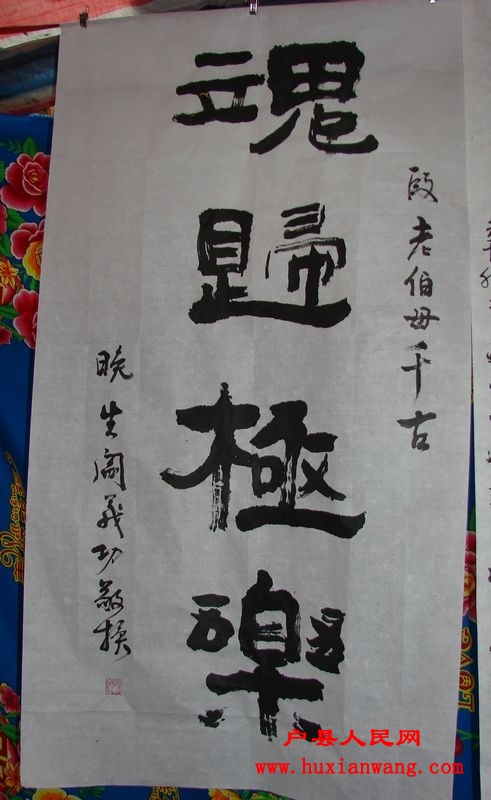 段老伯母千古
魂歸極樂
晚生阎義功敬挽
户县人民网
www.huxianwang.com